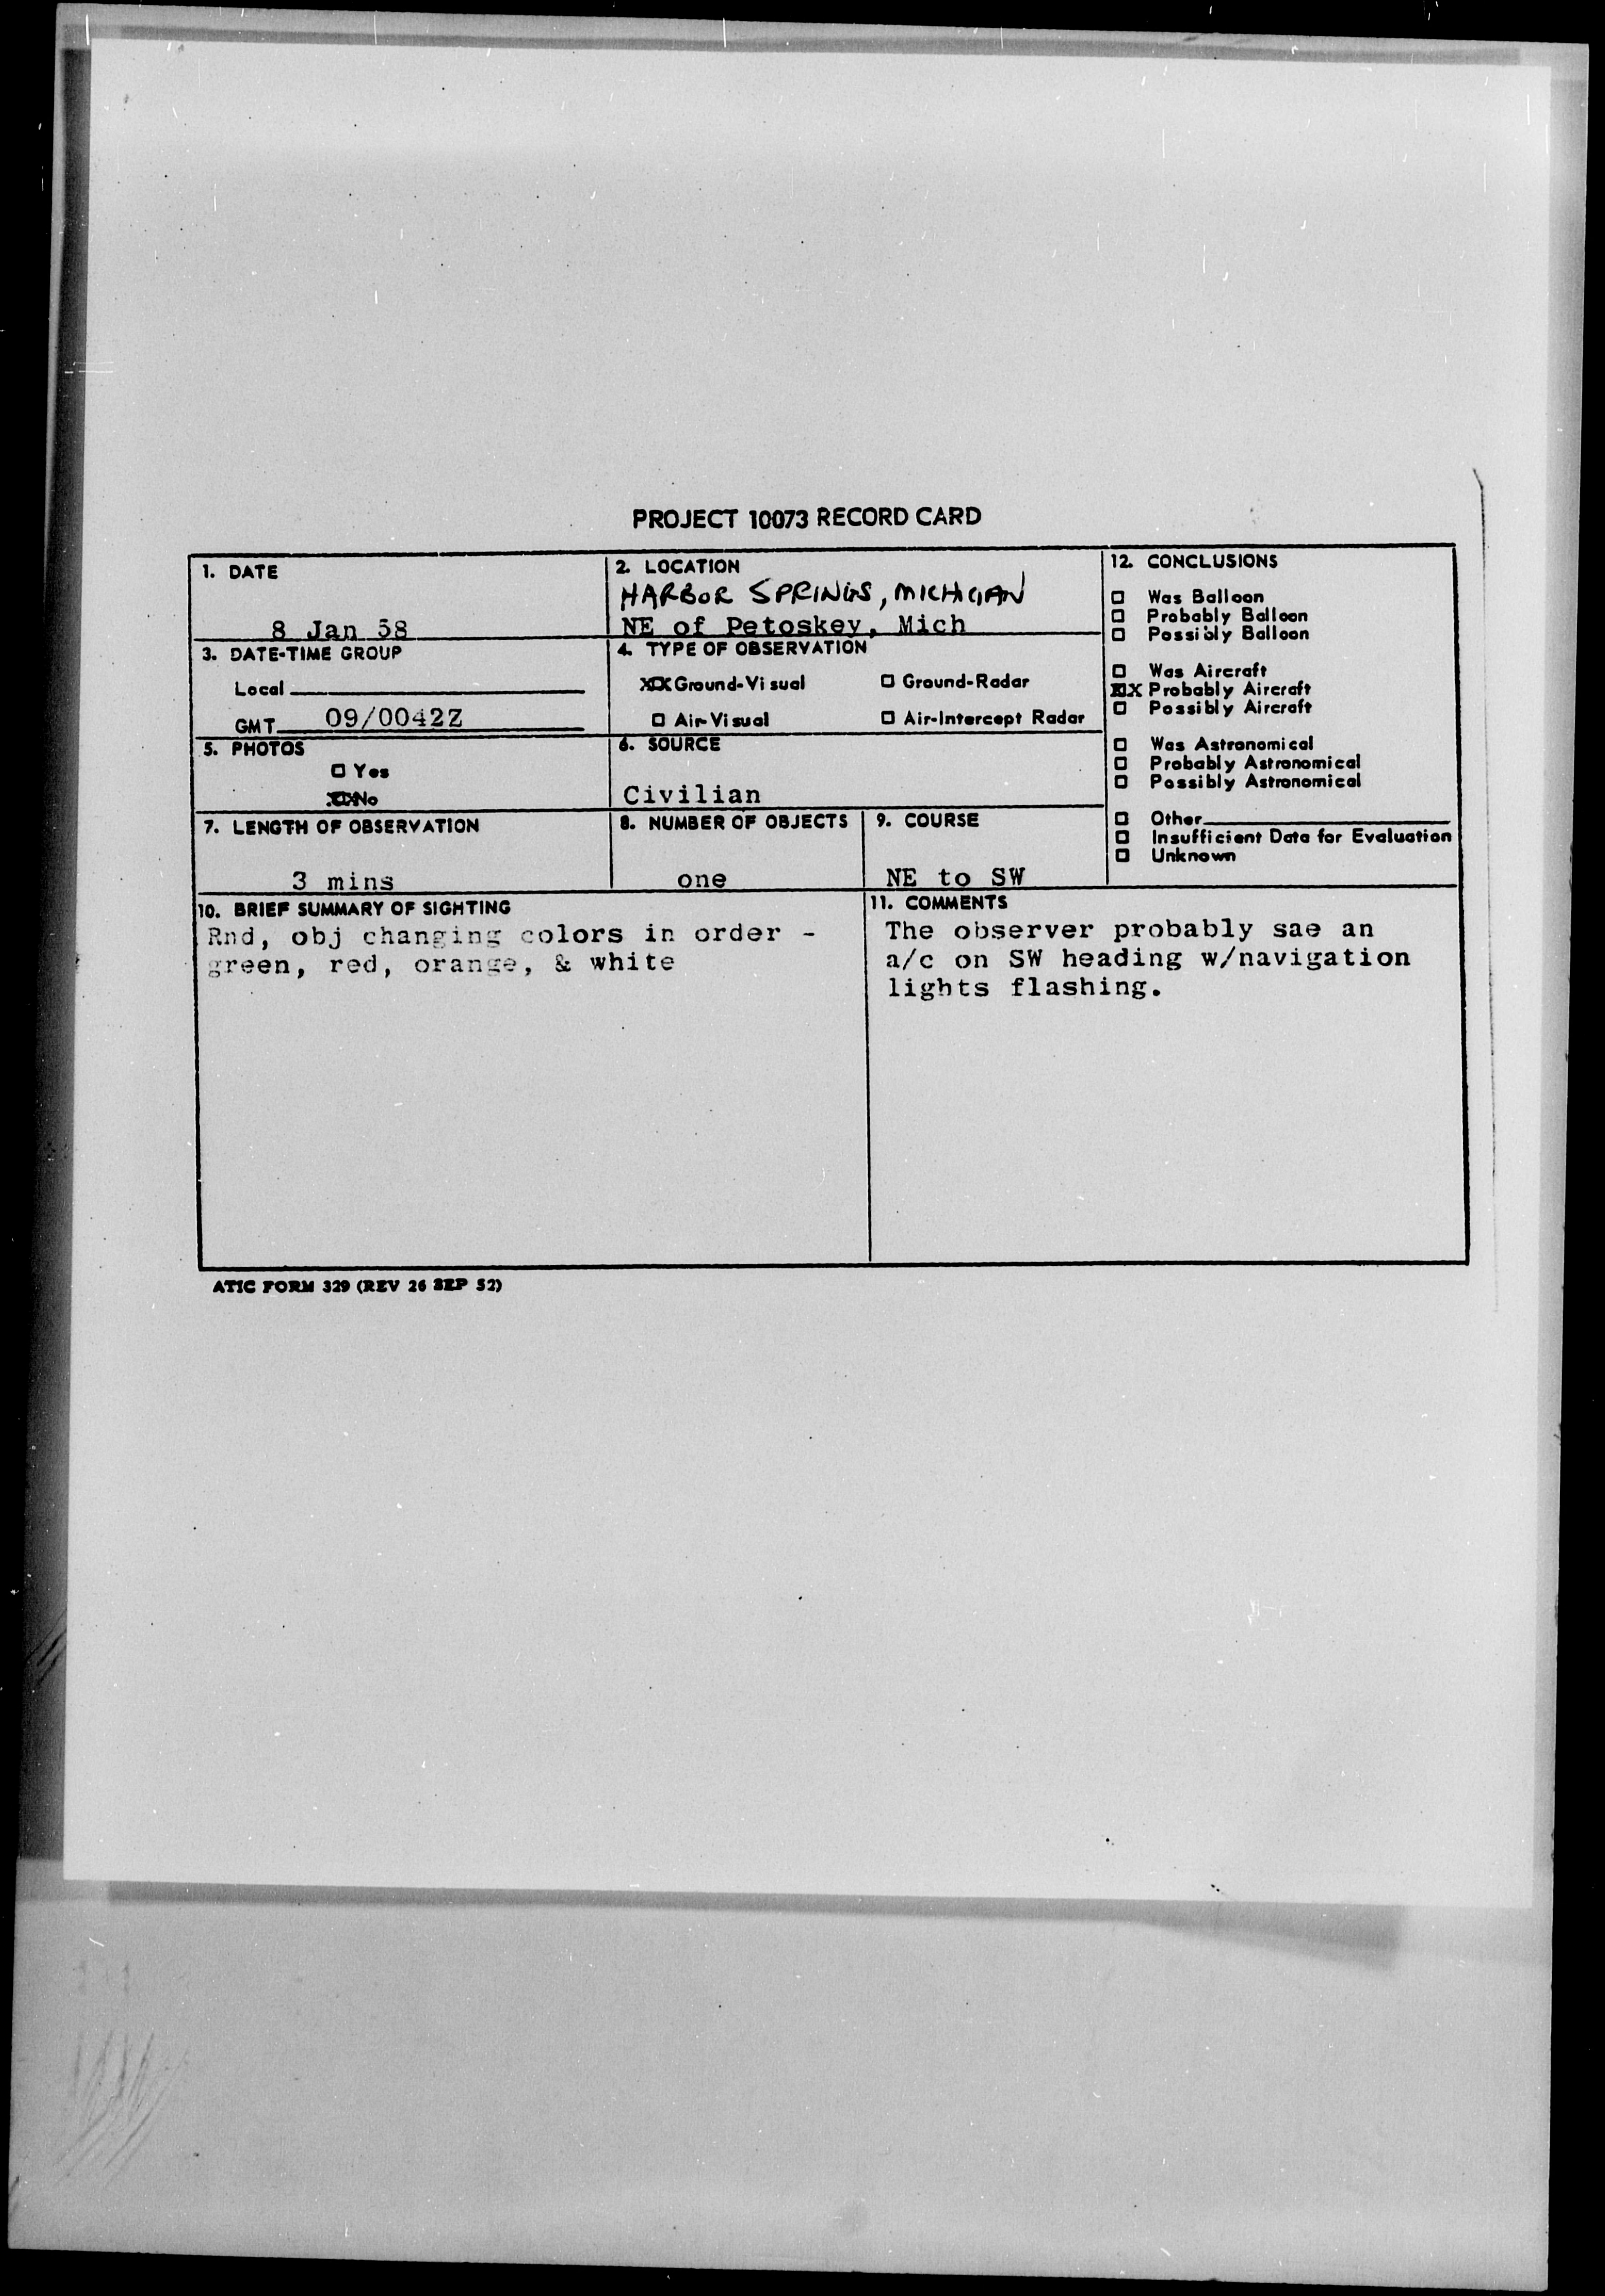 PROJECT 10073 RECORD CARD
1. DATE
8 Jan 58
2. LOCATION
HARBOR SPRINGS, MICHIGAN
NE of Petoskey, Mich
12. CONCLUSIONS
☐ Was Balloon
☐ Probably Balloon
☐ Possibly Balloon
☐ Was Aircraft
XX Probably Aircraft
☐ Possibly Aircraft
☐ Was Astronomical
☐ Probably Astronomical
☐ Possibly Astronomical
☐ Other
☐ Insufficient Data for Evaluation
☐ Unknown
3. DATE-TIME GROUP
Local
GMT 09/0042Z
4. TYPE OF OBSERVATION
XX Ground-Visual ☐ Ground-Radar
☐ Air-Visual ☐ Air-Intercept Radar
5. PHOTOS
☐ Yes
XX No
6. SOURCE
Civilian
7. LENGTH OF OBSERVATION
3 mins
8. NUMBER OF OBJECTS
one
9. COURSE
NE to SW
10. BRIEF SUMMARY OF SIGHTING
Rnd, obj changing colors in order -
green, red, orange, & white
11. COMMENTS
The observer probably sae an
a/c on SW heading w/navigation
lights flashing.
ATIC FORM 329 (REV 26 SEP 52)